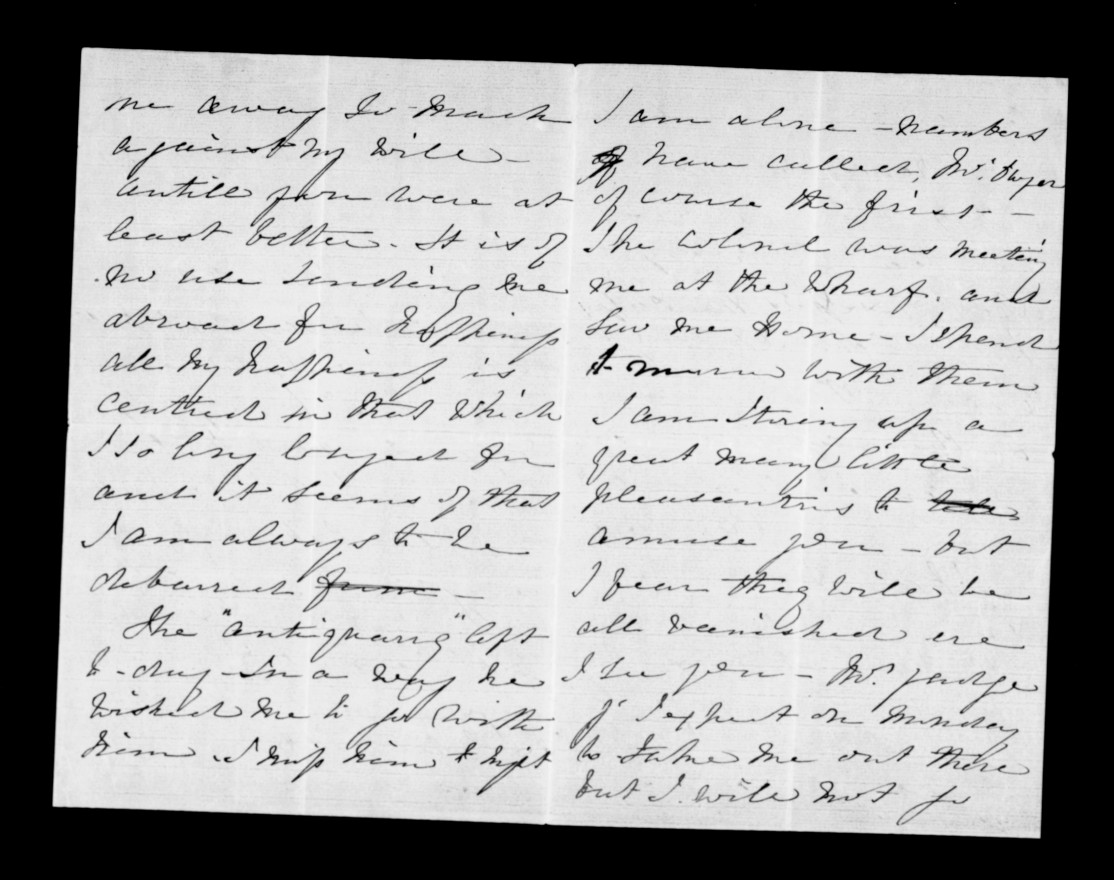 me away so much
against my will -
untill you were at
least better. It is of
no use sending me
abroad for happiness
all my happiness is
centred in that which
I so long longed for
and it seems of that
I am always to be
debarred from -
The "antiquary" left
to-day - In a way he
wished me to go with
him. I miss him to night
I am alone - numbers
of have called, Mr. Dwyer
of course the first -
The colonel was meeting
me at the wharf. and
saw me home - I spend
with them
I am storing up a
great many little
pleasantris to tele
amuse you - but
I fear they will be
all vanished ere
I see you - Mr. judge
I expect on Monday
to take me out there
but I will not go